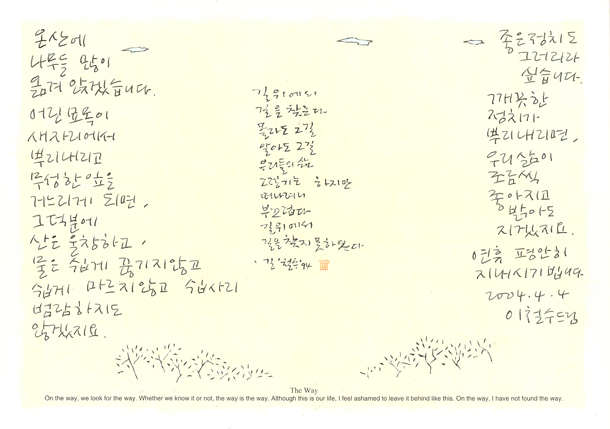 온산에
나무들 많이
옮겨 앉겠습니다.
어린 묘목이
새자리에서
뿌리내리고
무성한 잎을
거느리게 되면,
그덕분에
산은 울창하고,
물은 쉽게 끊기지않고
쉽게 마르지않고 쉽사리
범람하지도
않겠지요.
길위에서
길을 찾는다
몰라도 그길
알아도 그길
우리들의 삶은
그렇기는 하지만
떠나려니
부끄럽다
길위에서
길을 찾지 못하였다
길 '철수' 94
좋은정치도
그러리라
싶습니다.
깨끗한
정치가
뿌리내리면,
우리 삶이
조금씩
좋아지고
밝아도
지겠지요.
연휴 평안히
지내시기 빕니다
2004.4.4
이철수드림
The Way
On the way, we look for the way. Whether we know it or not, the way is the way. Although this is our life, I feel ashamed to leave it behind like this. On the way, I have not found the way.